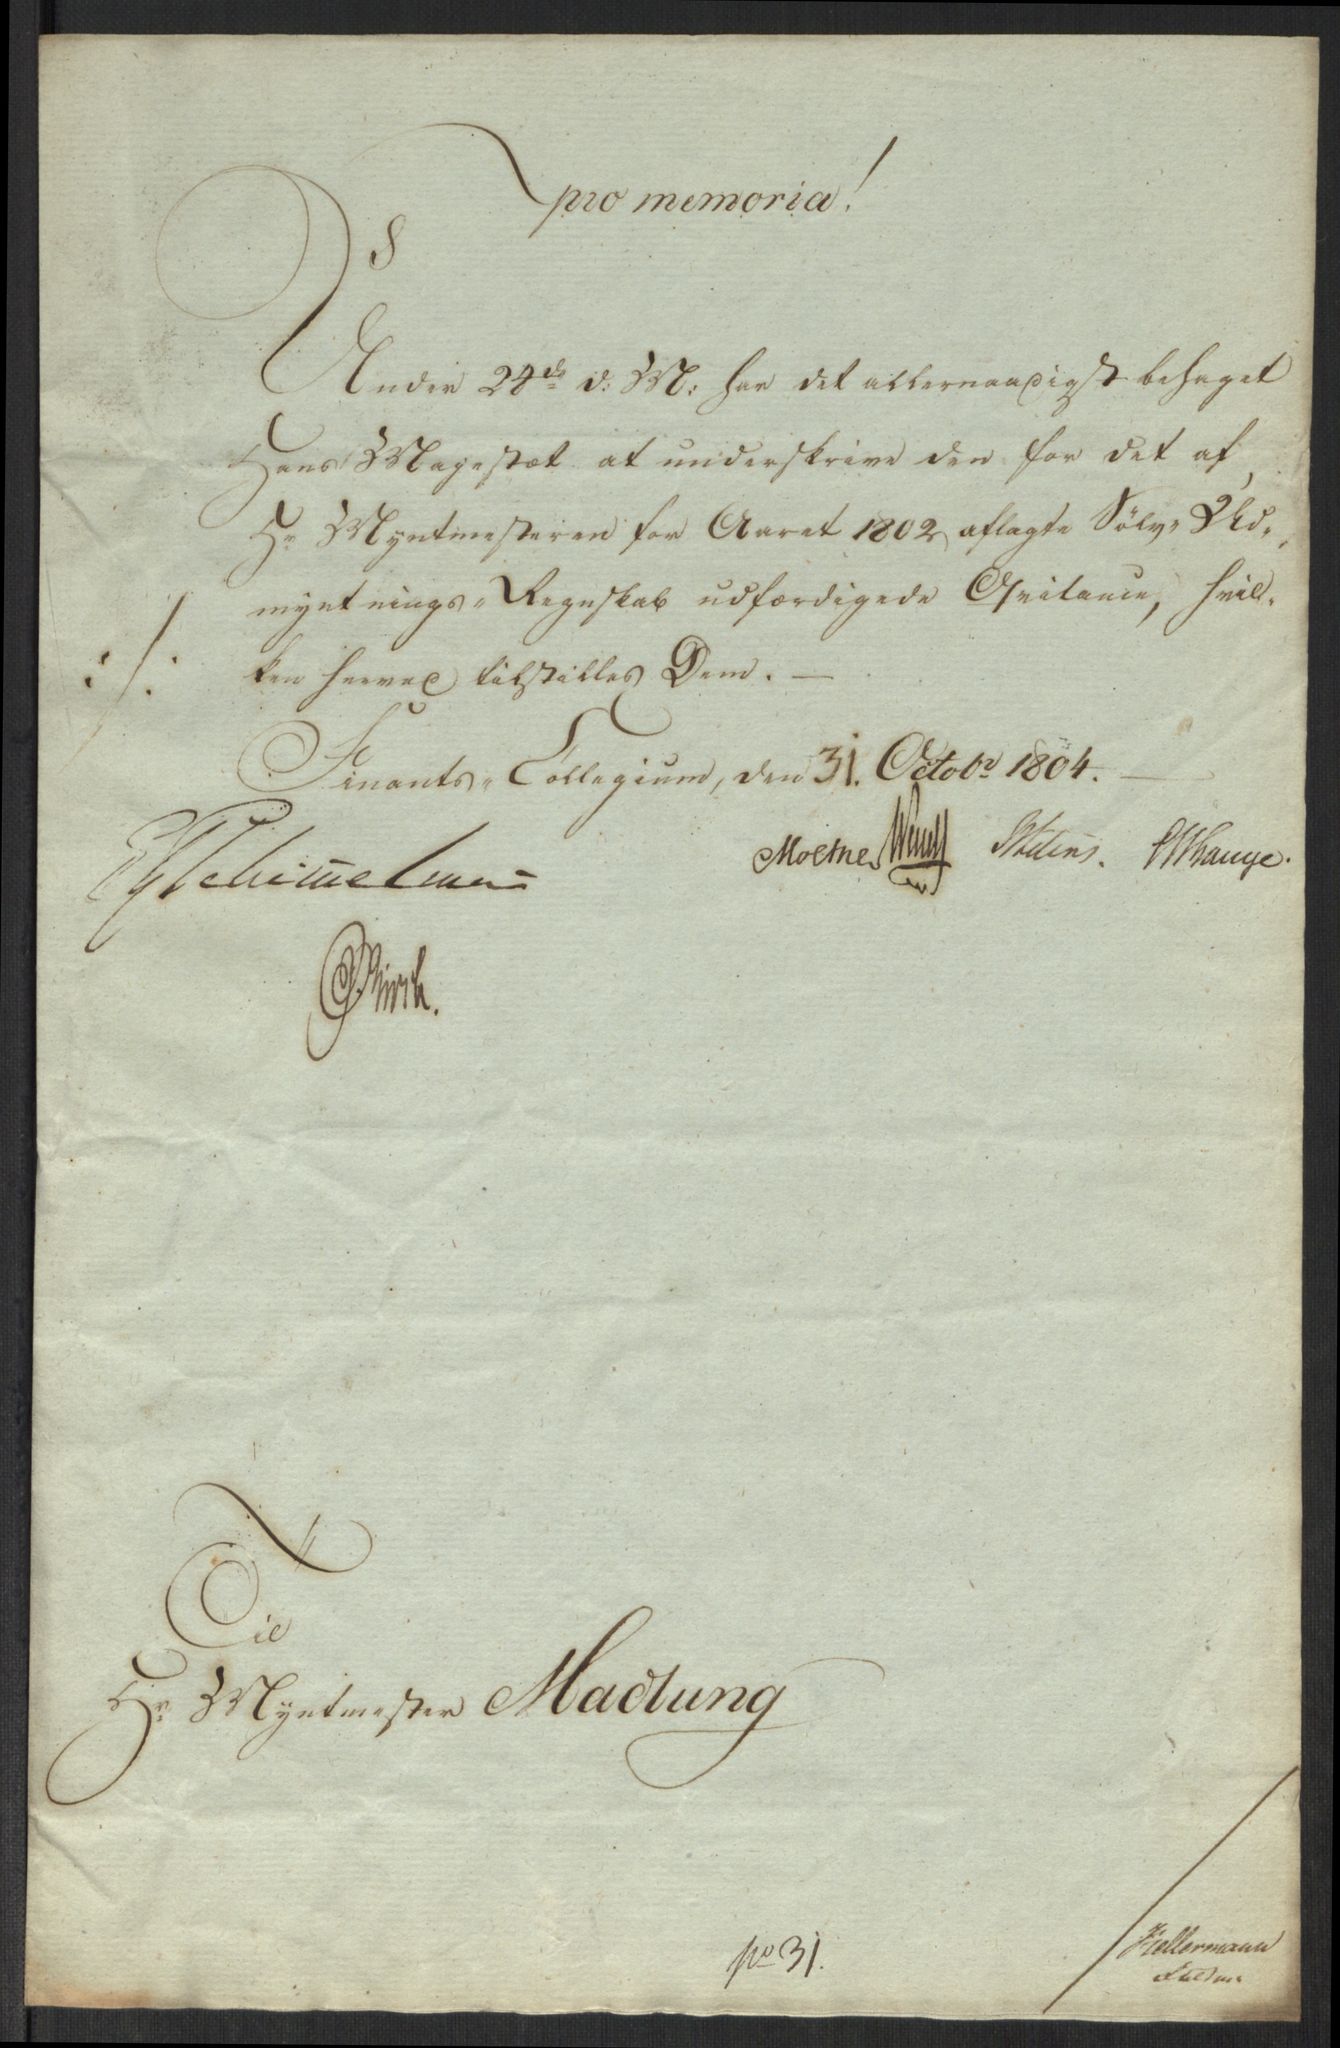 pro memoria!
Under 24de d: M: har det allernaadigst behaget
Hans Majestæt at underskrive den for det af
Hr Myntmesteren for Aaret 1802 aflagte Sölv-Ud-
myntnings-Regnskab udfærdigede Qvitance, hvil-
./. ken herved tilstilles Dem. —
Finants-Collegium, den 31. Octobr 1804. —
Schimmelmann Moltke Wendt Stilins. Hhauge.
Kirck.
Til
Hr Myntmester Madlung
No 31.
Kellermann